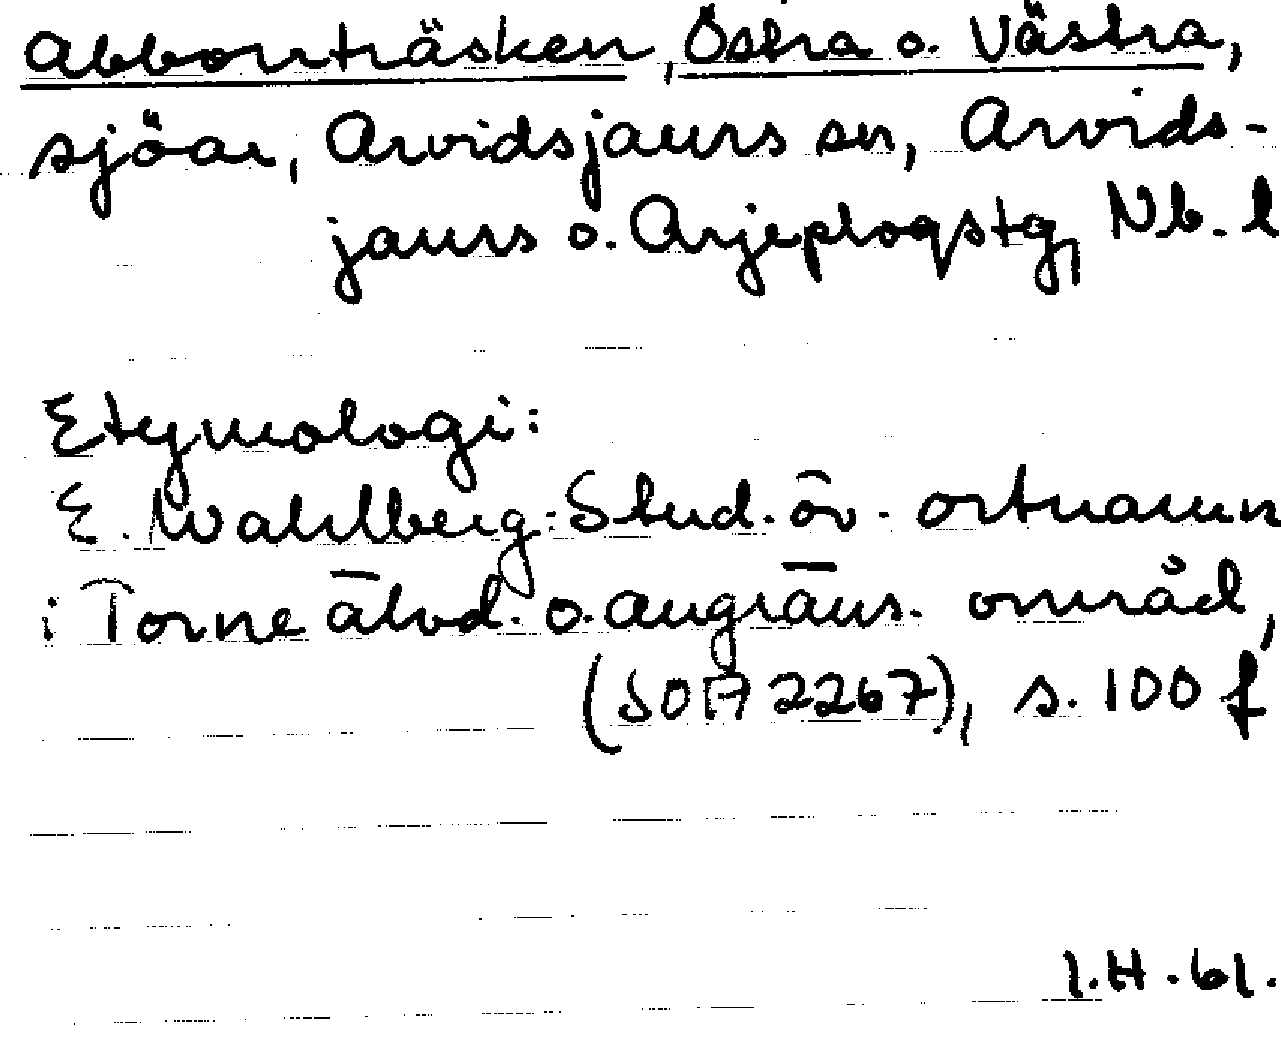 Abborrträsken, Östra o. Västra,
sjöar, Arvidsjaurs sn, Arvids-
jaurs o. Arjeplogs tg, Nb. l
Etymologi:
E. Wahlberg: Stud. öv. ortnamn
i Torne älvd. o. angräns. område,
(SOFA 2267), s. 100 f
I.H. 61.